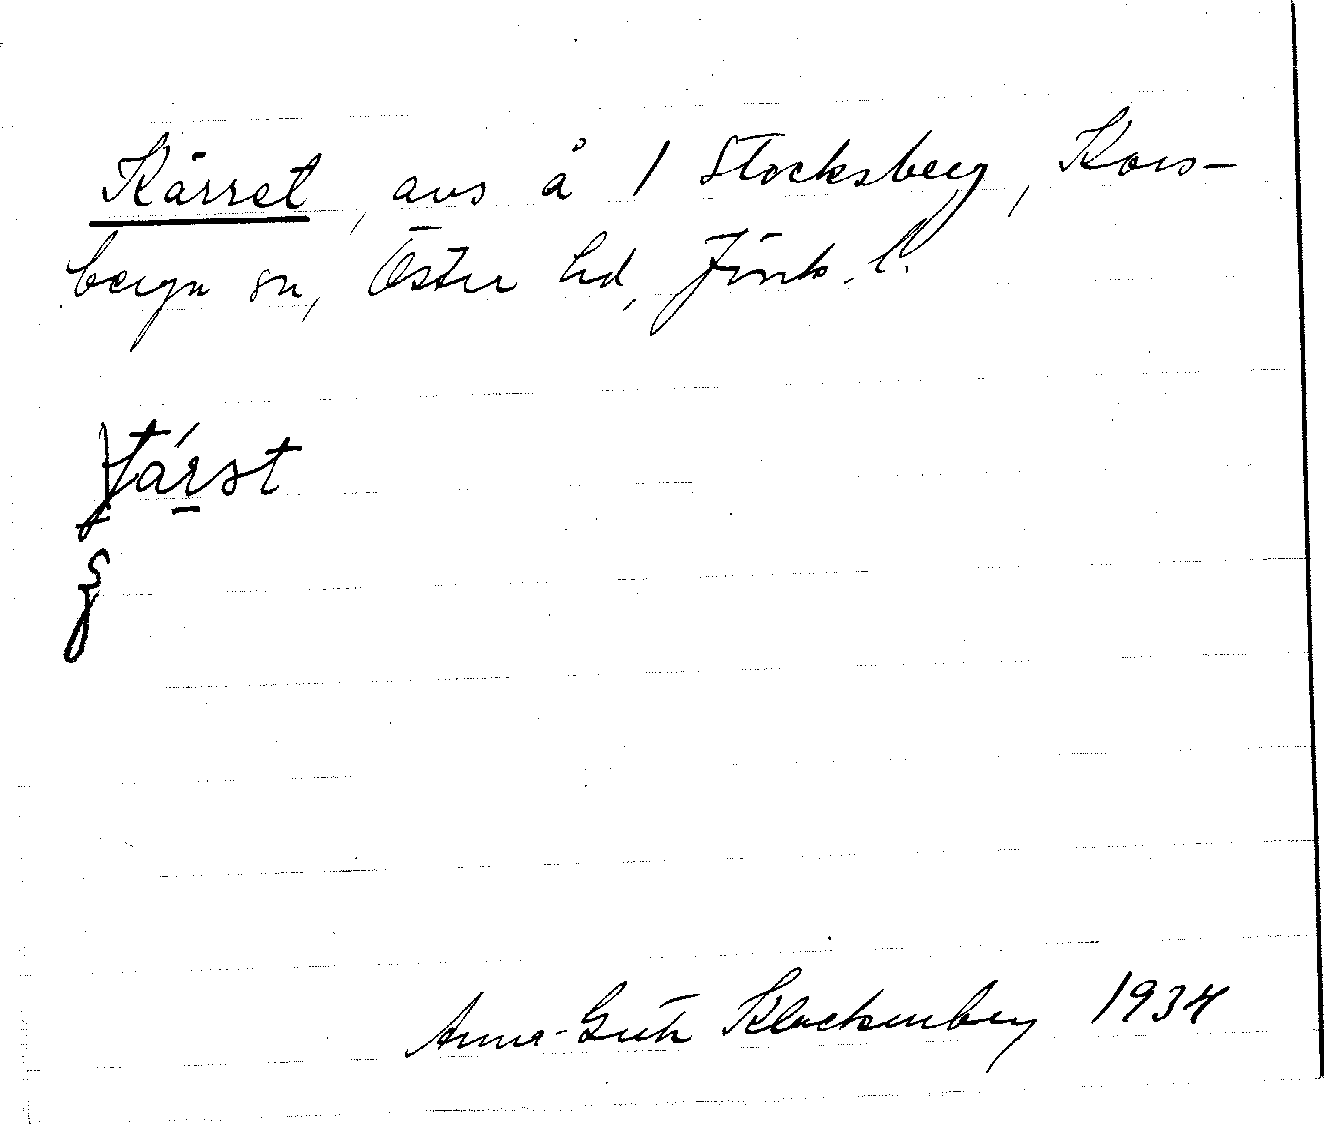 Kärret, avs å 1 Stocksberg, Kors-
berga sn, Östra hd, Jönk. l.
Anna-Greta Klockenberg 1934